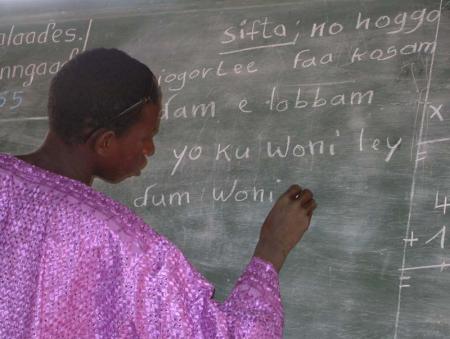 alaades./
nngaad
55
sifta; no hoggo
jogorLee faa kosam
dam e labbam
yo ku woni ley
dum woni
x
=
4
+ 1
=